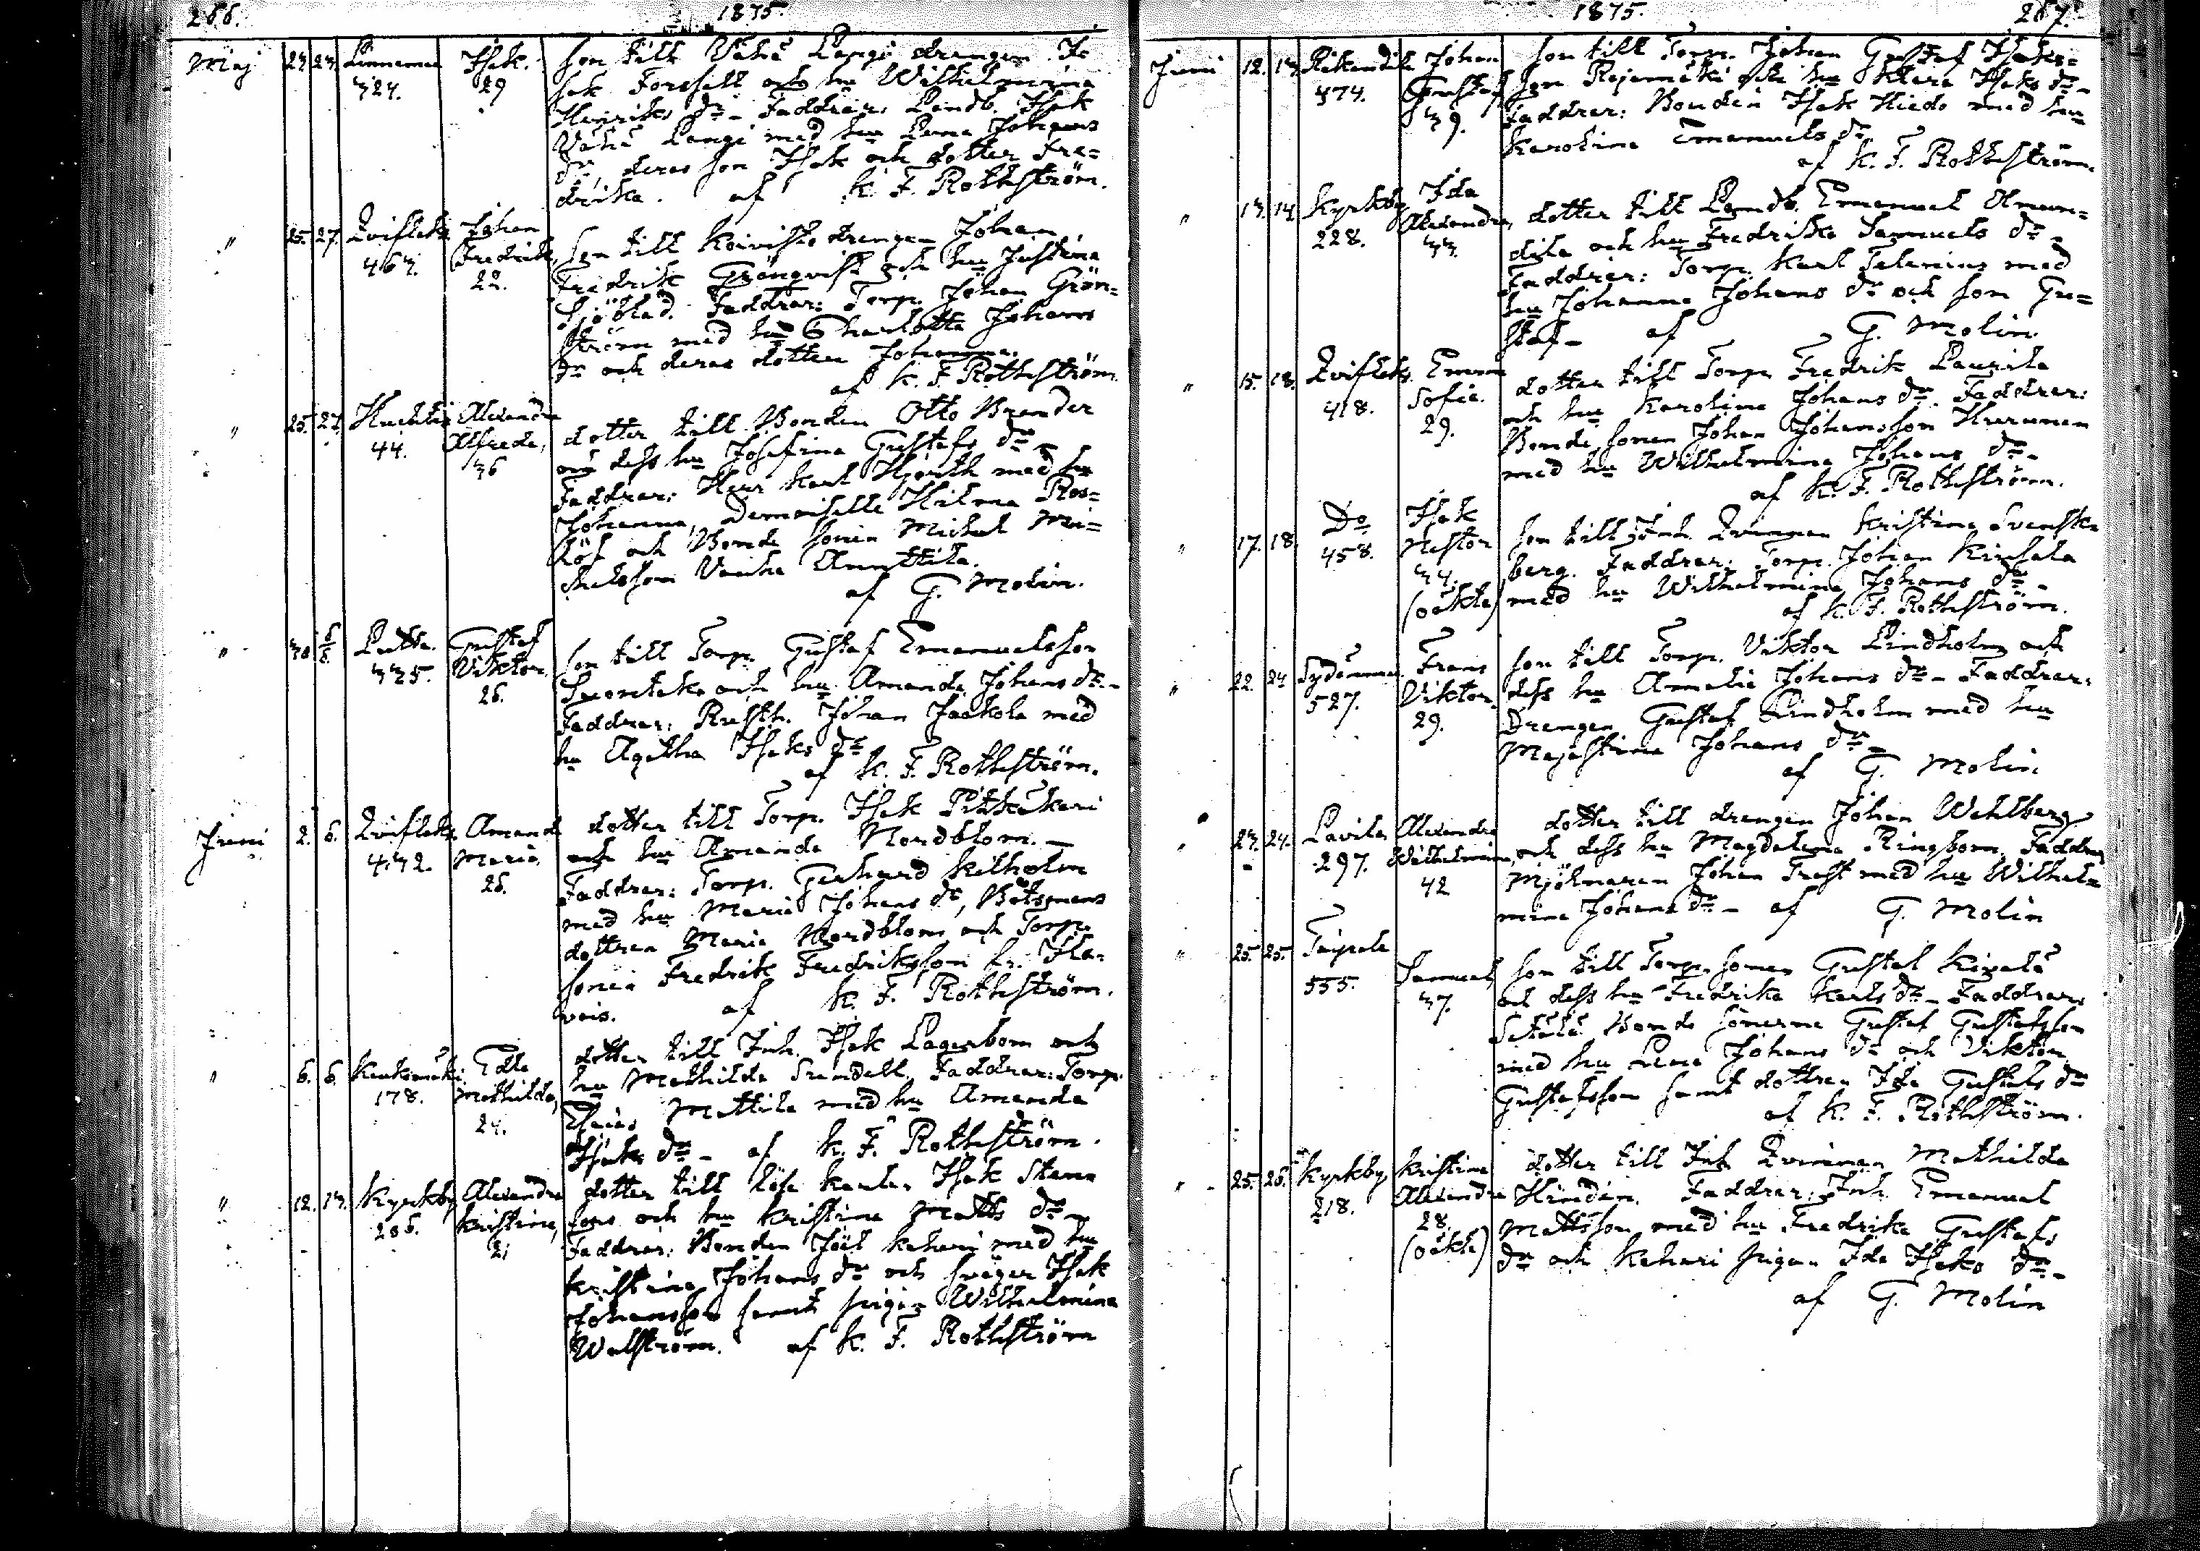 266. 1875.
Maj 23. 23. Isak.
324. 29
son till Vähä Langi drengen I-
sak Forssell och hu Wilhelmina
Henriks dr. Faddrar: Landb. Isak
Vähä Langi med hu Lena Johans
dr, deras son Isak och dotter Fre-
drika. af K. F. Rothström.
" 25. 27. Qviflaks Johan
463. Fredrik,
22.
Son till Koivisto drengen Johan
Fredrik Grönqvist och hu Justina
Sjöblad. Faddrar: Torp. Johan Grön-
ström med hu Charlotta Johans
dr och deras dotter Johanna.
af K. F. Rothström.
" 25. 27. Huhtis Alexandra
44. Alfreda,
36
dotter till Bonden Otto Brander
och dess hu Josefina Gustafs dr
Faddrar: Herr Karl Hjorth med hu
Johanna, Demoiselle Hilma Ros-
löf och Bonde sonen Michel Mi-
chelsson Vanha Anttila.
af G. Molin.
" 30 6/6 Lutta Gustaf
335. Viktor
26.
Son till Torp. Gustaf Emanuelsson
och hu Amanda Johans dr.
Faddrar: Rusth. Johan Jaakola med
hu Agatha Isaks dr
af K. F. Rothström.
Juni 2. 6. Qviflaks. Amanda
432. Maria.
26.
dotter till Torp. Isak Pitkäkari
och hu Amanda Nordblom.
Faddrar: Torp. Gerhard Kilholm
med hu Maria Johans dr, Båtsmans
dottren Maria Nordblom och Torp.
sonen Fredrik Fredriksson fr. Ila-
vois. af K. F. Rothström.
" 6. 6. Edla
178. Mathilda,
24.
dotter till Inh. Isak Lagerbom och
hu Mathilda Sundell. Faddrar: Torp.
Elias Mattila med hu Amanda
Isaks dr af K. F. Rothström.
" 12. 13. Kyrkby Alexandra
206. Kristina,
21
dotter till lösa karlen Isak Stens
fors och hu Kristina Matts dr
Faddrar: Bonden Joel Kahari med hu
Kristina Johans dr och svåger Isak
Johansson samt pigan Wilhelmina
Walström. af K. F. Rothström
1875. 267.
Juni 12. 13. Johan
474. Gustaf
39.
Son till Torp. Johan Gustaf Isaks-
son Rajamäki och hu Klara Isaks dr
Faddrar: Bonden Isak Hiedo med hu
Karolina Emanuels dr
af K. F. Rothström.
" 13. 14. Kyrkby Ida
228. Alexandra,
33.
dotter till Landb. Emanuel
och hu Fredrika Samuels dr
Faddrar: Torp. Karl Salenius med
hu Johanna Johans dr och son Gu-
staf af G. Molin.
" 15. 18. Qviflaks. Emma
418. Sofia.
29.
dotter till Torp. Fredrik Laurila
och hu Karolina Johans dr. Faddrar:
Bonde sonen Johan Johansson
med hu Wilhelmina Johans dr
af K. F. Rothström.
" 17. 18. Do Isak
458. Nestor
34.
(oäkta)
Son till Inh. Qvinnan Kristina Svensk-
berg. Faddrar: Torp. Johan
med hu Wilhelmina Johans dr
af K. F. Rothström.
" 22. 24 Sydänmaa Frans
527. Viktor
29.
son till Torp. Viktor Lindholm och
dess hu Amalia Johans dr Faddrar:
Drengen Gustaf Lindholm med hu
Majastina Johans dr
af G. Molin
" 23. 24. Lavila Alexandra
297. Wilhelmina,
42
dotter till drengen Johan Wahlberg
och dess hu Magdalena Ringbom. Faddrar
Mjölnaren Johan Trast med hu Wilhel-
mina Johans dr af G. Molin
" 25. 25. Taipale
555. Samuel
37.
Son till Torp. sonen Gustaf
och dess hu Fredrika Karls dr Faddrar
Bonde sönerna Gustaf Gustafsson
med hu Lena Johans dr och Viktor
Gustafsson samt dottren Ida Gustafs dr
af K. F. Rothström.
" 25. 26. Kyrkby Kristina
218. Alexandra
28.
(oäkta)
dotter till Inh. Qvinnan Mathilda
Hindén. Faddrar: Inh. Emanuel
Mattsson med hu Fredrika Gustafs
dr och Kahari pigan Ida Isaks dr
af G. Molin